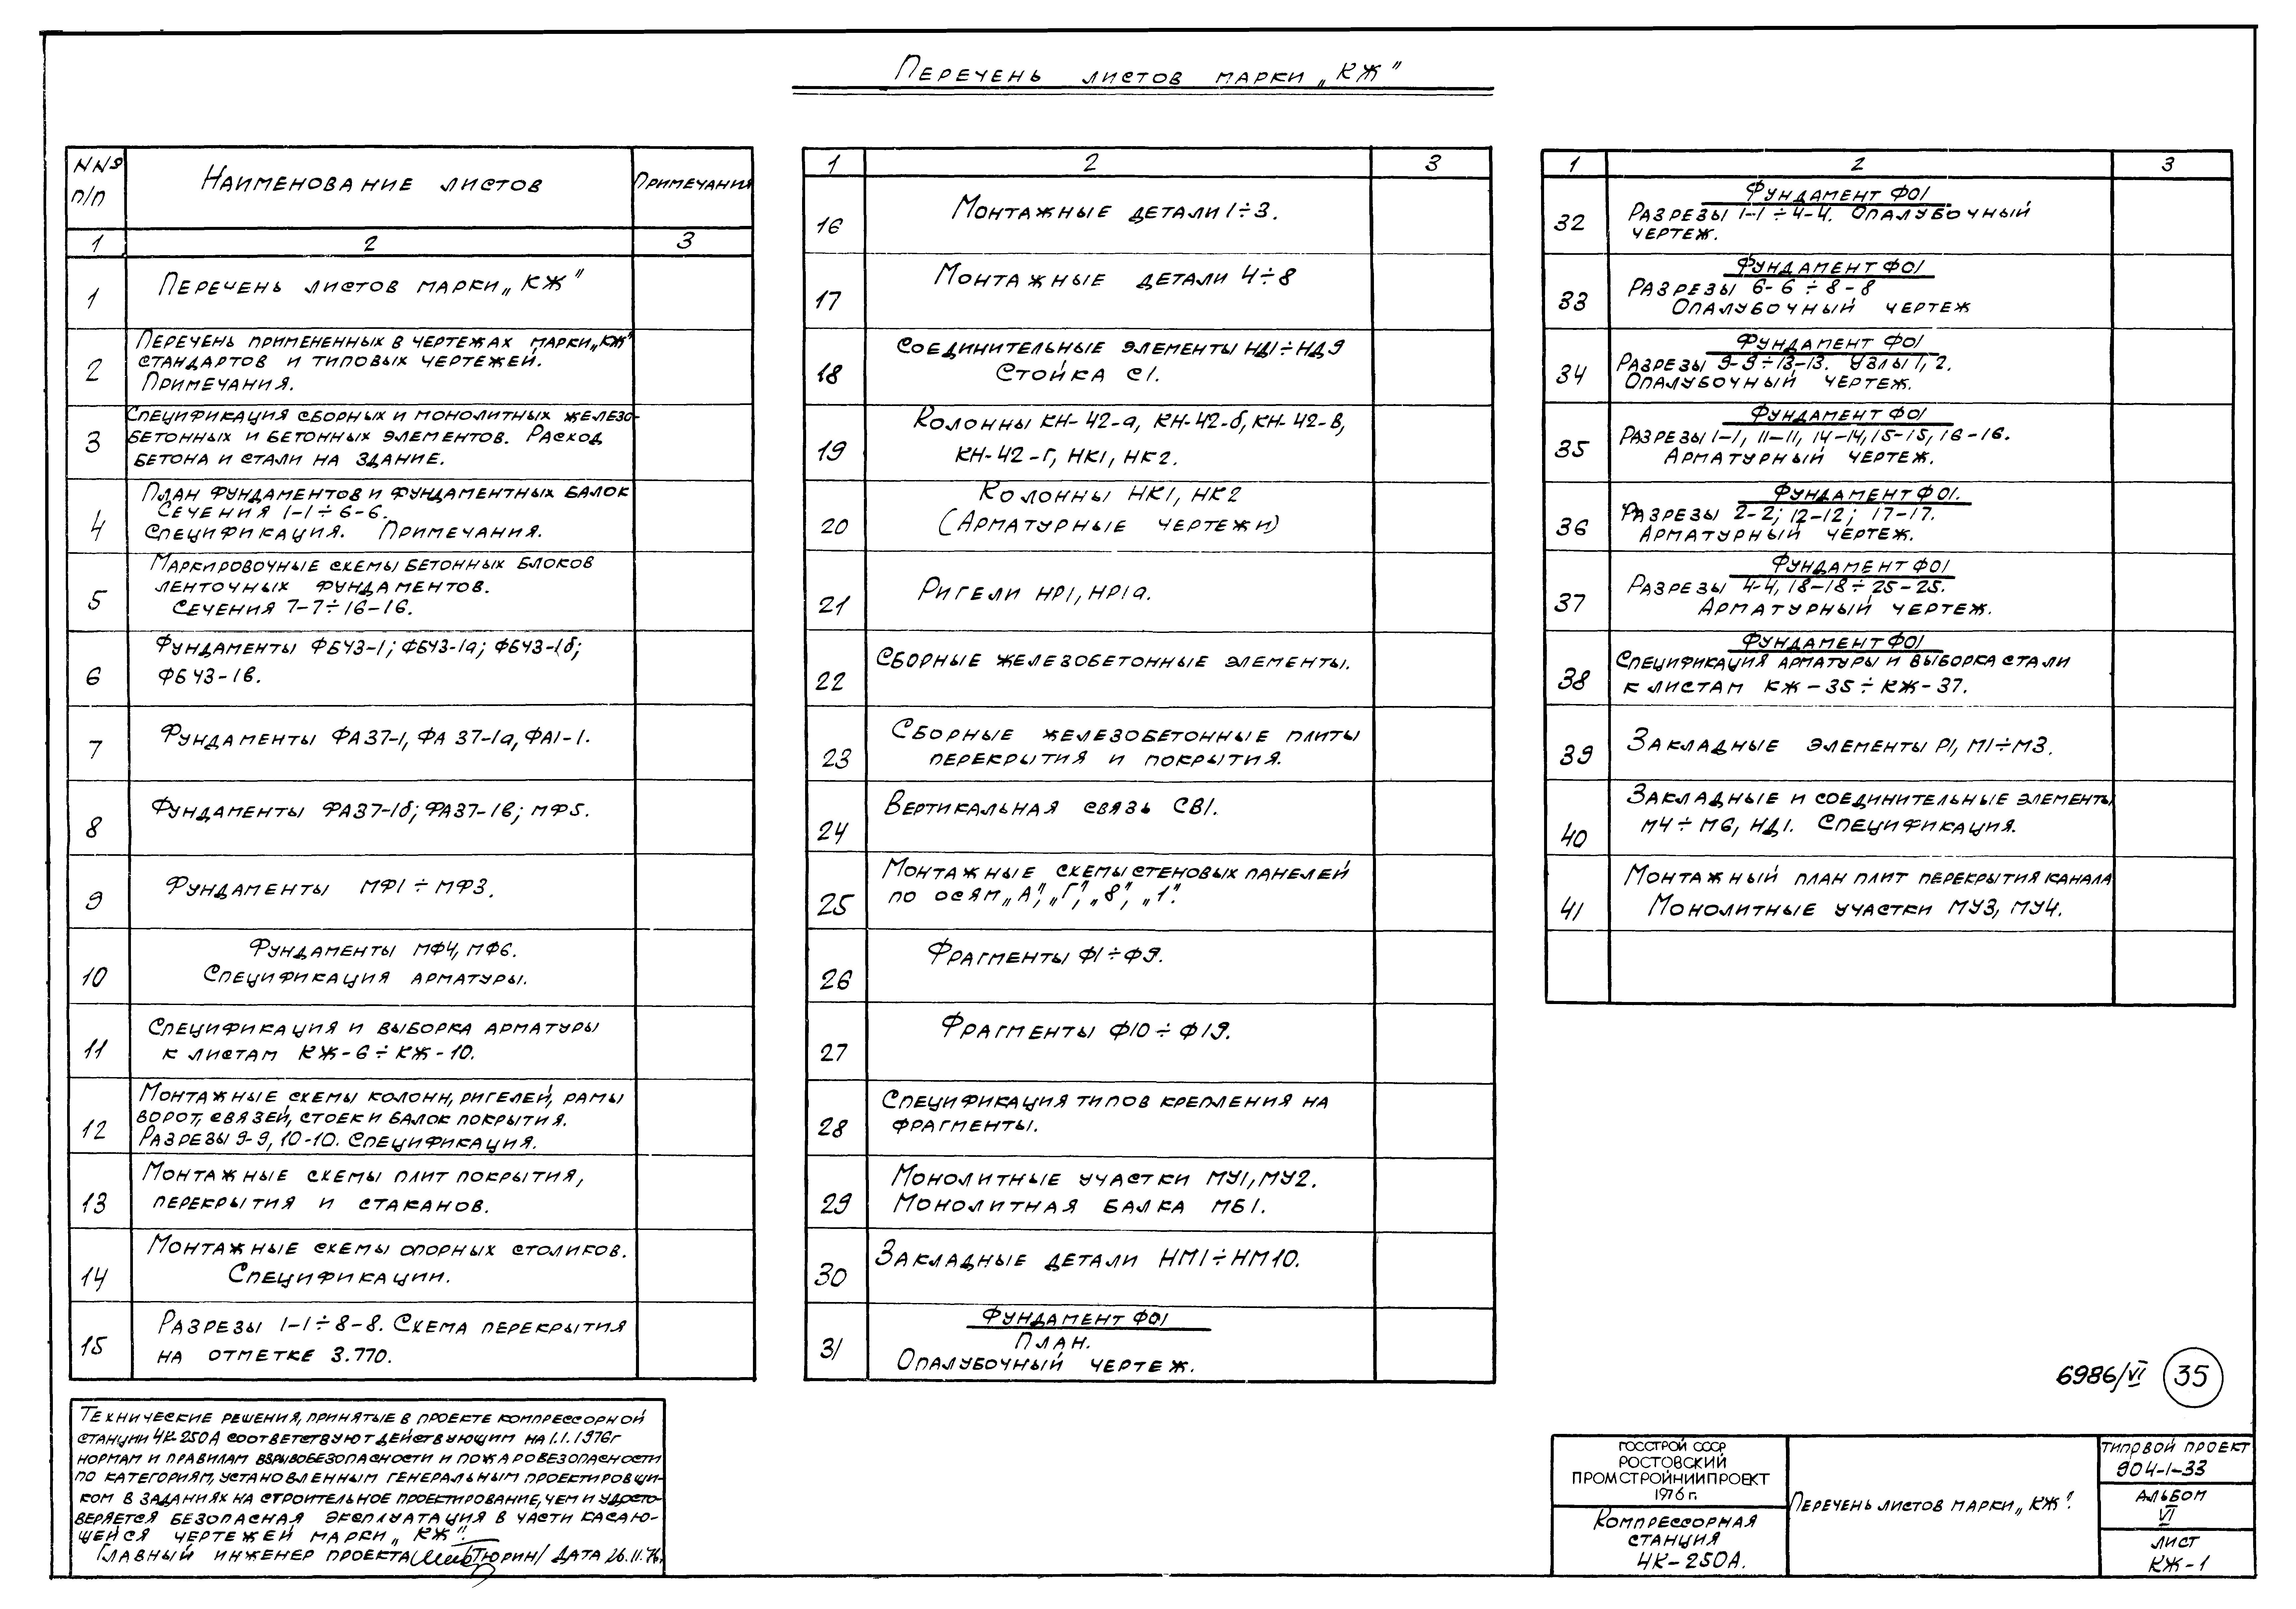 Перечень листов марки „КЖ"
NNº п/п
Наименование листов
Примечания
1
2
3
1
Перечень листов марки „КЖ"
2
Перечень примененных в чертежах марки „КЖ"
стандартов и типовых чертежей.
Примечания.
3
Спецификация сборных и монолитных железо-
бетонных и бетонных элементов. Расход
бетона и стали на здание.
4
План фундаментов и фундаментных балок
Сечения 1-1÷6-6.
Спецификация. Примечания.
5
Маркировочные схемы бетонных блоков
ленточных фундаментов.
Сечения 7-7÷16-16.
6
Фундаменты ФБ43-1; ФБ43-1а; ФБ43-1б;
ФБ43-1в.
7
Фундаменты ФА37-1, ФА 37-1а, ФА1-1.
8
Фундаменты ФА37-1б; ФА37-1в; МФ5.
9
Фундаменты МФ1÷МФ3.
10
Фундаменты МФ4, МФ6.
Спецификация арматуры.
11
Спецификация и выборка арматуры
к листам КЖ-6÷КЖ-10.
12
Монтажные схемы колонн, ригелей, рамы
ворот, связей, стоек и балок покрытия.
Разрезы 9-9, 10-10. Спецификация.
13
Монтажные схемы плит покрытия,
перекрытия и стаканов.
14
Монтажные схемы опорных столиков.
Спецификации.
15
Разрезы 1-1÷8-8. Схема перекрытия
на отметке 3.770.
1
2
3
16
Монтажные детали 1÷3.
17
Монтажные детали 4÷8
18
Соединительные элементы НД1÷НД9
Стойка С1.
19
Колонны КН-42-а, КН-42-б, КН-42-в,
КН-42-г, НК1, НК2.
20
Колонны НК1, НК2
(Арматурные чертежи)
21
Ригели НР1, НР1а.
22
Сборные железобетонные элементы.
23
Сборные железобетонные плиты
перекрытия и покрытия.
24
Вертикальная связь СВ1.
25
Монтажные схемы стеновых панелей
по осям „А", „Г", „8", „1".
26
Фрагменты Ф1÷Ф9.
27
Фрагменты Ф10÷Ф19.
28
Спецификация типов крепления на
фрагменты.
29
Монолитные участки МУ1, МУ2.
Монолитная балка МБ1.
30
Закладные детали НМ1÷НМ10.
31
Фундамент Ф01
План.
Опалубочный чертеж.
1
2
3
32
Фундамент Ф01
Разрезы 1-1÷4-4. Опалубочный
чертеж.
33
Фундамент Ф01
Разрезы 6-6÷8-8
Опалубочный чертеж
34
Фундамент Ф01
Разрезы 9-9÷13-13. Узлы 1, 2.
Опалубочный чертеж.
35
Фундамент Ф01
Разрезы 1-1, 11-11, 14-14, 15-15, 16-16.
Арматурный чертеж.
36
Фундамент Ф01.
Разрезы 2-2; 12-12; 17-17.
Арматурный чертеж.
37
Фундамент Ф01
Разрезы 4-4, 18-18÷25-25.
Арматурный чертеж.
38
Фундамент Ф01
Спецификация арматуры и выборка стали
к листам КЖ-35÷КЖ-37.
39
Закладные элементы Р1, М1÷М3.
40
Закладные и соединительные элементы
М4÷М6, НД1. Спецификация.
41
Монтажный план плит перекрытия канала
Монолитные участки МУ3, МУ4.
Технические решения, принятые в проекте компрессорной
станции 4К-250А соответствуют действующим на 1.1.1976г
нормам и правилам взрывобезопасности и пожаробезопасности
по категориям, установленным генеральным проектировщи-
ком в заданиях на строительное проектирование, чем и удосто-
веряется безопасная эксплуатация в части касаю-
щейся чертежей марки „КЖ".
Главный инженер проекта /Тюрин/ Дата 26.11.76г
6986/VI 35
ГОССТРОЙ СССР
РОСТОВСКИЙ
ПРОМСТРОЙНИИПРОЕКТ
1976 г.
Компрессорная
станция
4К-250А.
Перечень листов марки „КЖ".
Типовой проект
904-1-33
Альбом
VI
Лист
КЖ-1